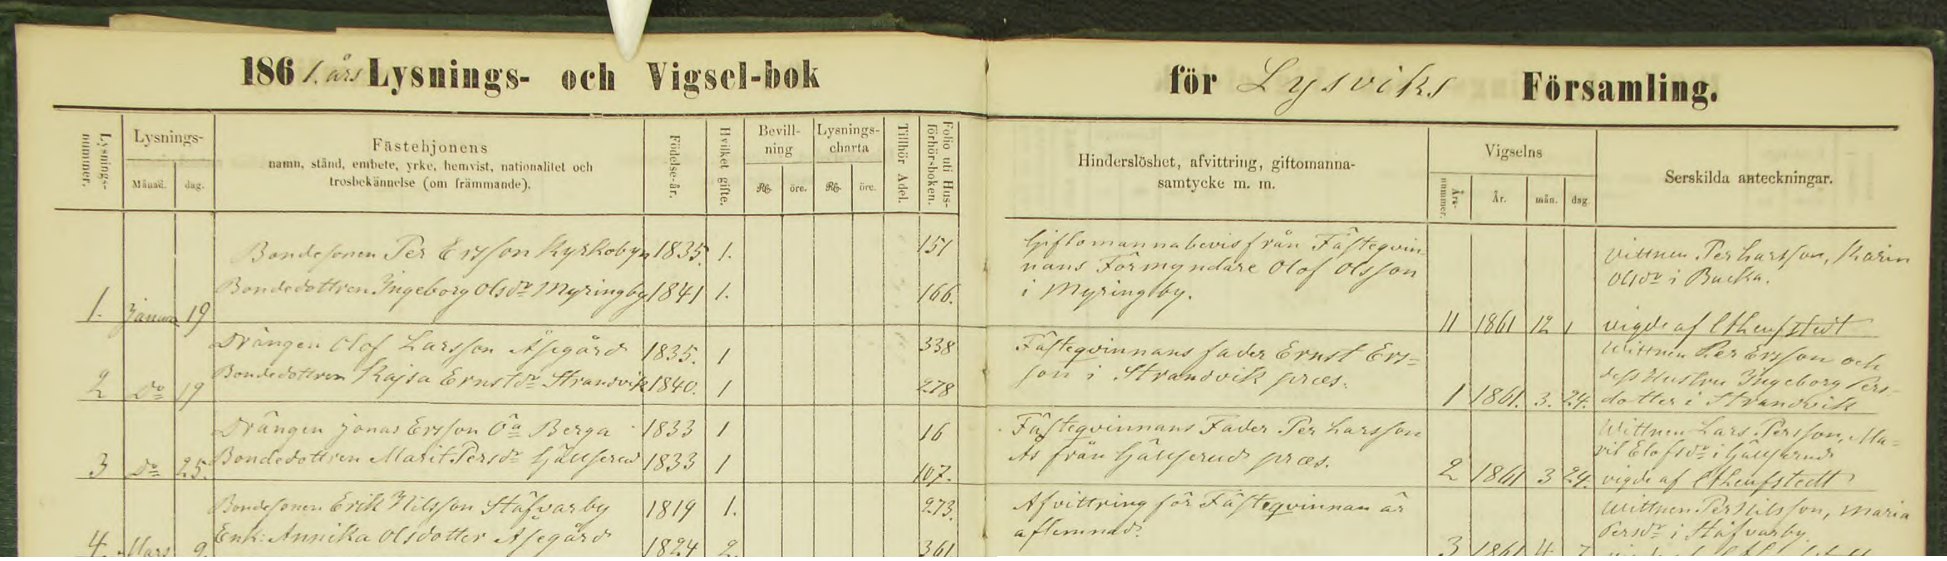 1861. års Lysnings- och Vigsel-bok för Lysviks Församling.
Lysnings-nummer.
Lysnings-
Månad. dag.
Fästehjonens
namn, stånd, embete, yrke, hemvist, nationalitet och
trosbekännelse (om främmande).
Födelse-år.
Hvilket gifte.
Bevill-
ning
Rdr. öre.
Lysnings-
charta
Rdr. öre.
Tillhör Adel.
Folio uti Hus-
förhörsboken.
Hinderslöshet, afvittring, giftomanna-
samtycke m. m.
Vigselns
Års-
nummer. År. mån. dag
Serskilda anteckningar.
Bondesonen Per Ersson Kyrkobyn 1835. 1. 151
Bondedottren Ingeborg Olsdr Myringby 1841 1. 166.
1. Januari 19
Giftomannabevis från Fästeqvin
nans Förmyndare Olof Olsson
i Myringby.
11 1861 12 1
vittnen Per Larsson, Karin
Olsdr i Backa.
vigde af
Drängen Olof Larsson Åsegård 1835. 1 338
2 Do 19 Bondedottren Kajsa Ernstdr Strandvik 1840. 1 278
Fästeqvinnans fader Ernst Ers=
son i Strandvik præs.
1 1861. 3. 24.
Wittnen Per Ersson och
dess Hustru Ingeborg Pers-
dotter i Strandvik
Drängen Jonas Ersson Öa Berga 1833 1 16
3 Do 25. Bondedottren Marit Persdr 1833 1 107.
Fästeqvinnans Fader Per Larsson
Ås från præs.
2 1861 3 24.
Wittnen Lars Persson, Ma=
rit Elofsdr i
vigde af
Bondesonen Erik Nilsson Stafvarby 1819 1. 273.
4. Mars 9. Enk: Annika Olsdotter Åsegård 1824 2. 361
Afvittring för Fästeqvinnan är
aflemnad.
3 1861 4. 7
Wittnen Per Nilsson, Maria
Persdr i Stafvarby.